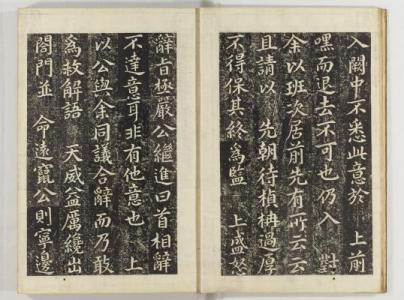 入闕中不悉此意於 上前
嘿而退去不可也仍入 對
余以班次居前先有所云云
且請以 先朝待楨冉過厚
不得保其終爲監 上盛怒
辭旨極嚴公繼進曰首相辭
不達意耳非有他意也 上
以公與余同議合辭而乃敢
爲救解語 天威益厲纔出
閤門並 命遠竄公則寧邊